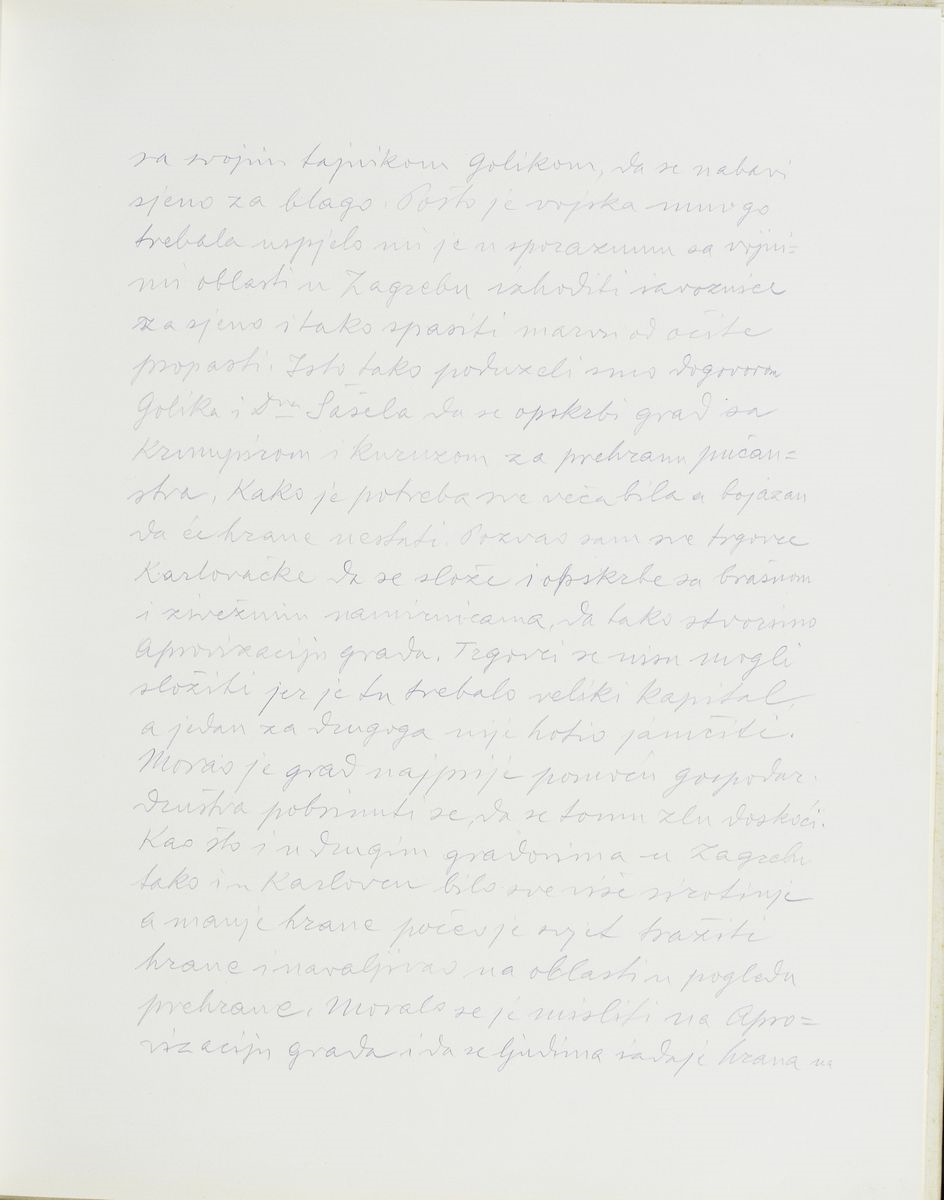 sa svojim tajnikom Golikom, da se nabavi
sjeno za blago. Pošto je vojska mnogo
trebala uspjelo mi je u sporazumu sa vojni=
mi oblasti u Zagrebu izhoditi izvoznice
za sjeno i tako spasiti marvu od očite
propasti. Isto tako poduzeli smo dogovorom
Golika i Dra Šašela da se opskrbi grad sa
Krumpirom i kuruzom za prehranu pučan=
stva. Kako je potreba sve veća bila a bojazan
da će hrane nestati. Pozvao sam sve trgovce
Karlovačke da se slože i opskrbe sa brašnom
i živežnim namirnicama, da tako stvorimo
Aprovizaciju grada. Trgovci se nisu mogli
složiti jer je tu trebalo veliki kapital,
a jedan za drugoga nije hotio jamčiti.
Morao je grad najprije pomoću gospodar.
društva pobrinuti se, da se tomu zlu doskoči.
Kao što i u drugim gradovima u Zagrebu
tako i u Karlovcu bilo sve više sirotinje
a manje hrane počeo je svjet tražiti
hrane i navaljivao na oblasti u pogledu
prehrane. Moralo se je misliti na Apro=
vizaciju grada i da se ljudima izdaje hrana na